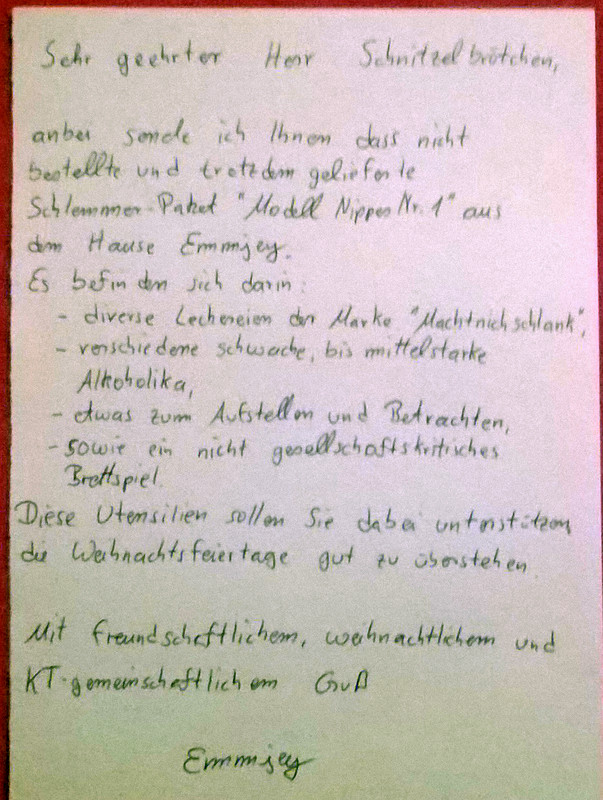 Sehr geehrter Herr Schnitzelbrötchen,
anbei sende ich Ihnen dass nicht
bestellte und trotzdem gelieferte
Schlemmer-Paket "Modell Nippes Nr. 1" aus
dem Hause Emmijey.
Es befinden sich darin:
- diverse Leckereien der Marke "Machtnichschlank",
- verschiedene schwache, bis mittelstarke
Alkoholika,
- etwas zum Aufstellen und Betrachten,
- sowie ein nicht gesellschaftskritisches
Brettspiel.
Diese Utensilien sollen Sie dabei unterstützen
die Weihnachtsfeiertage gut zu überstehen.
Mit freundschaftlichem, weihnachtlichem und
KT-gemeinschaftlichem Gruß
Emmijey